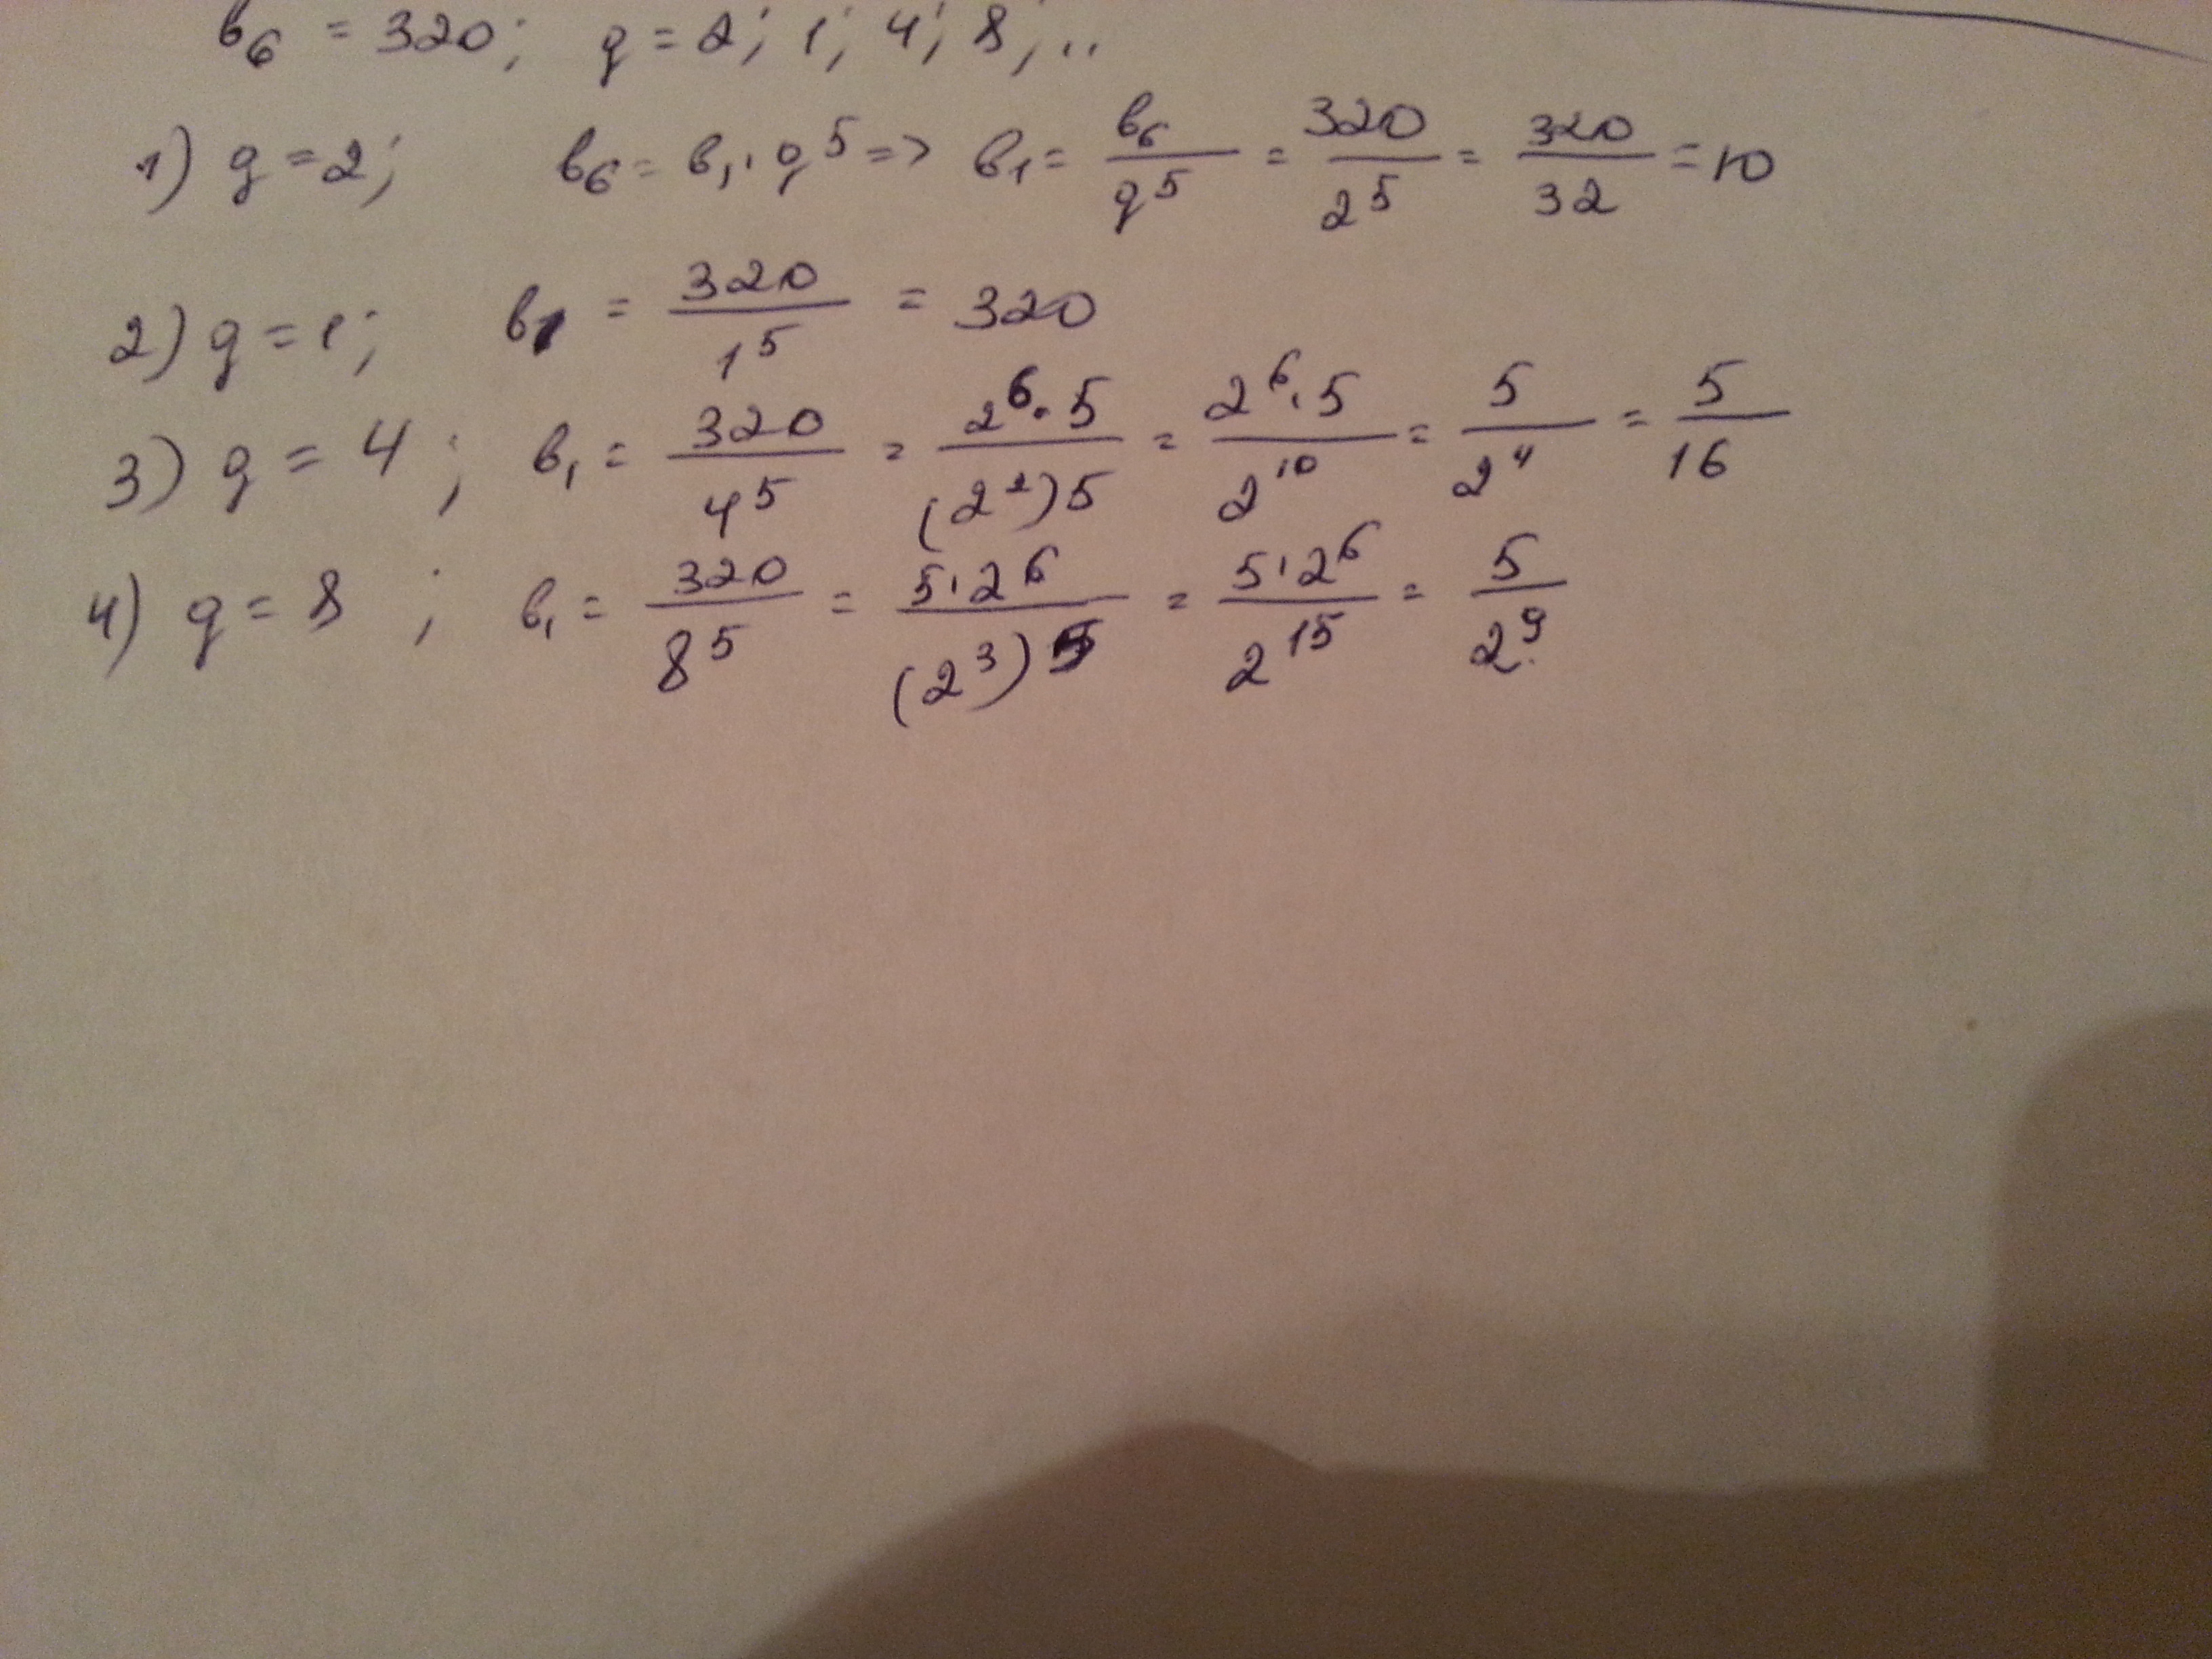 b₆ = 320; q = 2; 1; 4; 8; ..
1) q = 2; b₆ = b₁ · q⁵ => b₁ = b₆/q⁵ = 320/2⁵ = 320/32 = 10
2) q = 1; b₁ = 320/1⁵ = 320
3) q = 4; b₁ = 320/4⁵ = 2⁶·5/(2²)5 = 2⁶·5/2¹⁰ = 5/2⁴ = 5/16
4) q = 8; b₁ = 320/8⁵ = 5·2⁶/(2³)5 = 5·2⁶/2¹⁵ = 5/2⁹.